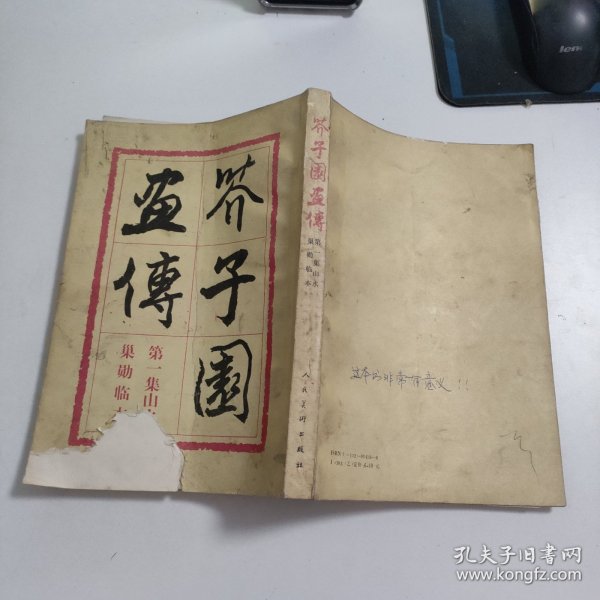 芥子園
畫傳
第一集山水
巢勋临本
芥子園畫傳
第一集山水
巢勋临本
人民美術出版社
这本书非常有意义!!
孔夫子旧书网
www.kongfz.com